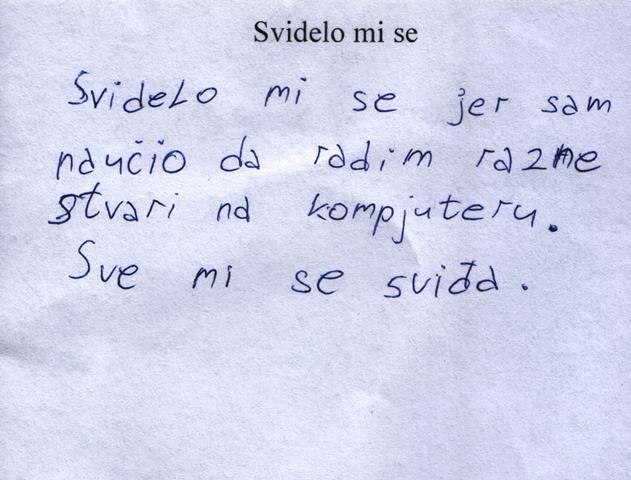 Svidelo mi se
Svidelo mi se jer sam
naučio da radim razne
stvari na kompjuteru.
Sve mi se sviđa.